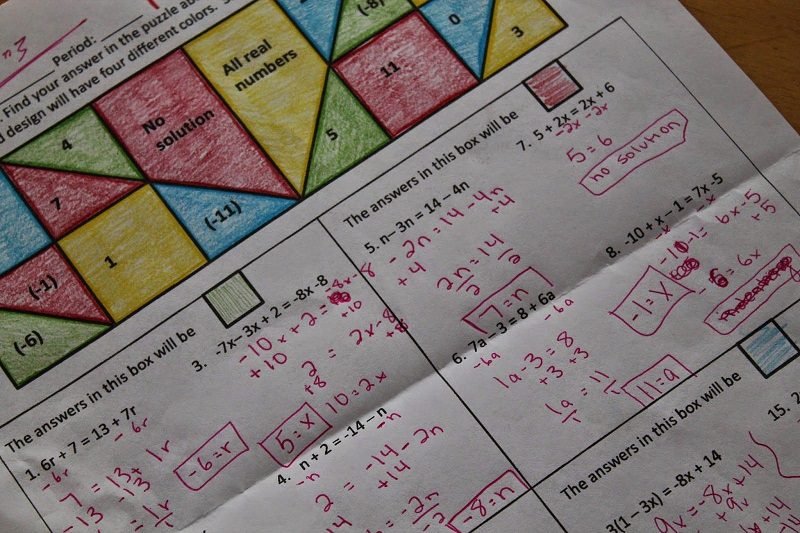 Period:
Find your answer in the puzzle
design will have four different colors.
(-8)
0
3
All real
numbers
11
No
solution
4
5
7
(-11)
1
(-1)
(-6)
The answers in this box will be
1. 6r + 7 = 13 + 7r
-6r
-6r
7 = 13 + 1r
-13 -13
-6=r
3. -7x - 3x + 2 = -8x - 8
-10x + 2 =
-8x-8
+10
+10
2 = 2x-8
+8
10=2x
5=x
4. n + 2 = -14 - n
-n
-n
2 = -14 - 2n
+14
-8=n
The answers in this box will be
5. n - 3n = 14 - 4n
-2n = 14 - 4n
+4
+4
2n = 14
7=n
6. 7a - 3 = 8 + 6a
-6a
-6a
1a - 3 = 8
+3 +3
1a = 11
11=a
7. 5 + 2x = 2x + 6
-2x -2x
5 = 6
no solution
8. -10 + x - 1 = 7x - 5
6x - 5
+5
= 6x
-1=x
The answers in this box will be
3(1 - 3x) = -8x + 14
-8x + 14
+9x
15.